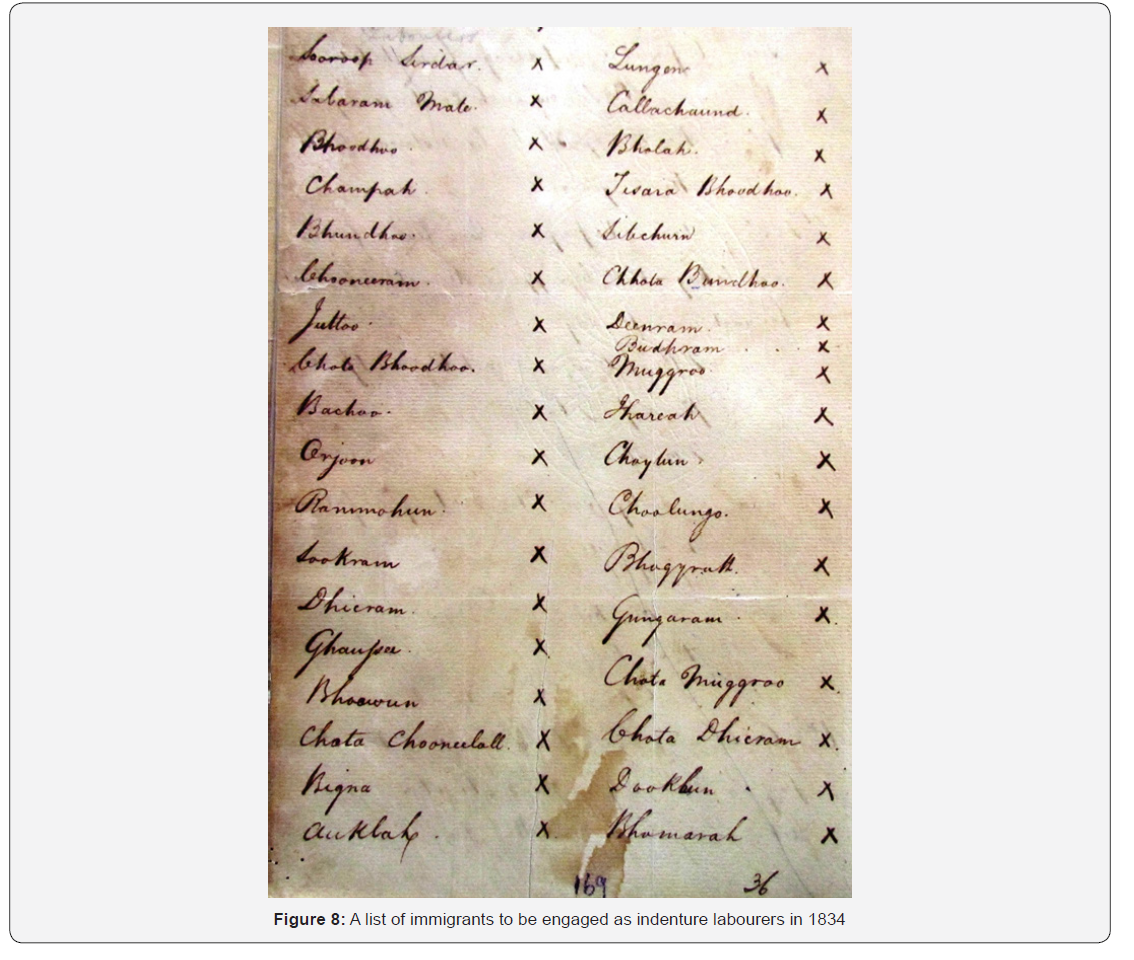 Sooroop Sirdar. x
Sabaram Mate. x
Bhoodhoo. x
Champah. x
Bhundhoo. x
Chooneeram. x
Juttoo. x
Chota Bhoodhoo. x
Bachoo. x
Orjoon x
Rammohun. x
Sookram x
Dhieram. x
x
Bhoowun x
Chota Chooneelall. x
Bigna x
Auklah. x
Lungon x
Callachaund. x
Bholah. x
Tisara Bhoodhoo. x
Sibchurn x
Chhota Bundhoo. x
Deenram. x
Budhram . . . x
Muggroo x
Jhareah x
Choytun. x
Choolungo. x
Bhogyrutt. x
Gungaram. x
Chota Muggroo x
Chota Dhieram x
Dookhun. x
Bhomarah x
169 36
Figure 8: A list of immigrants to be engaged as indenture labourers in 1834